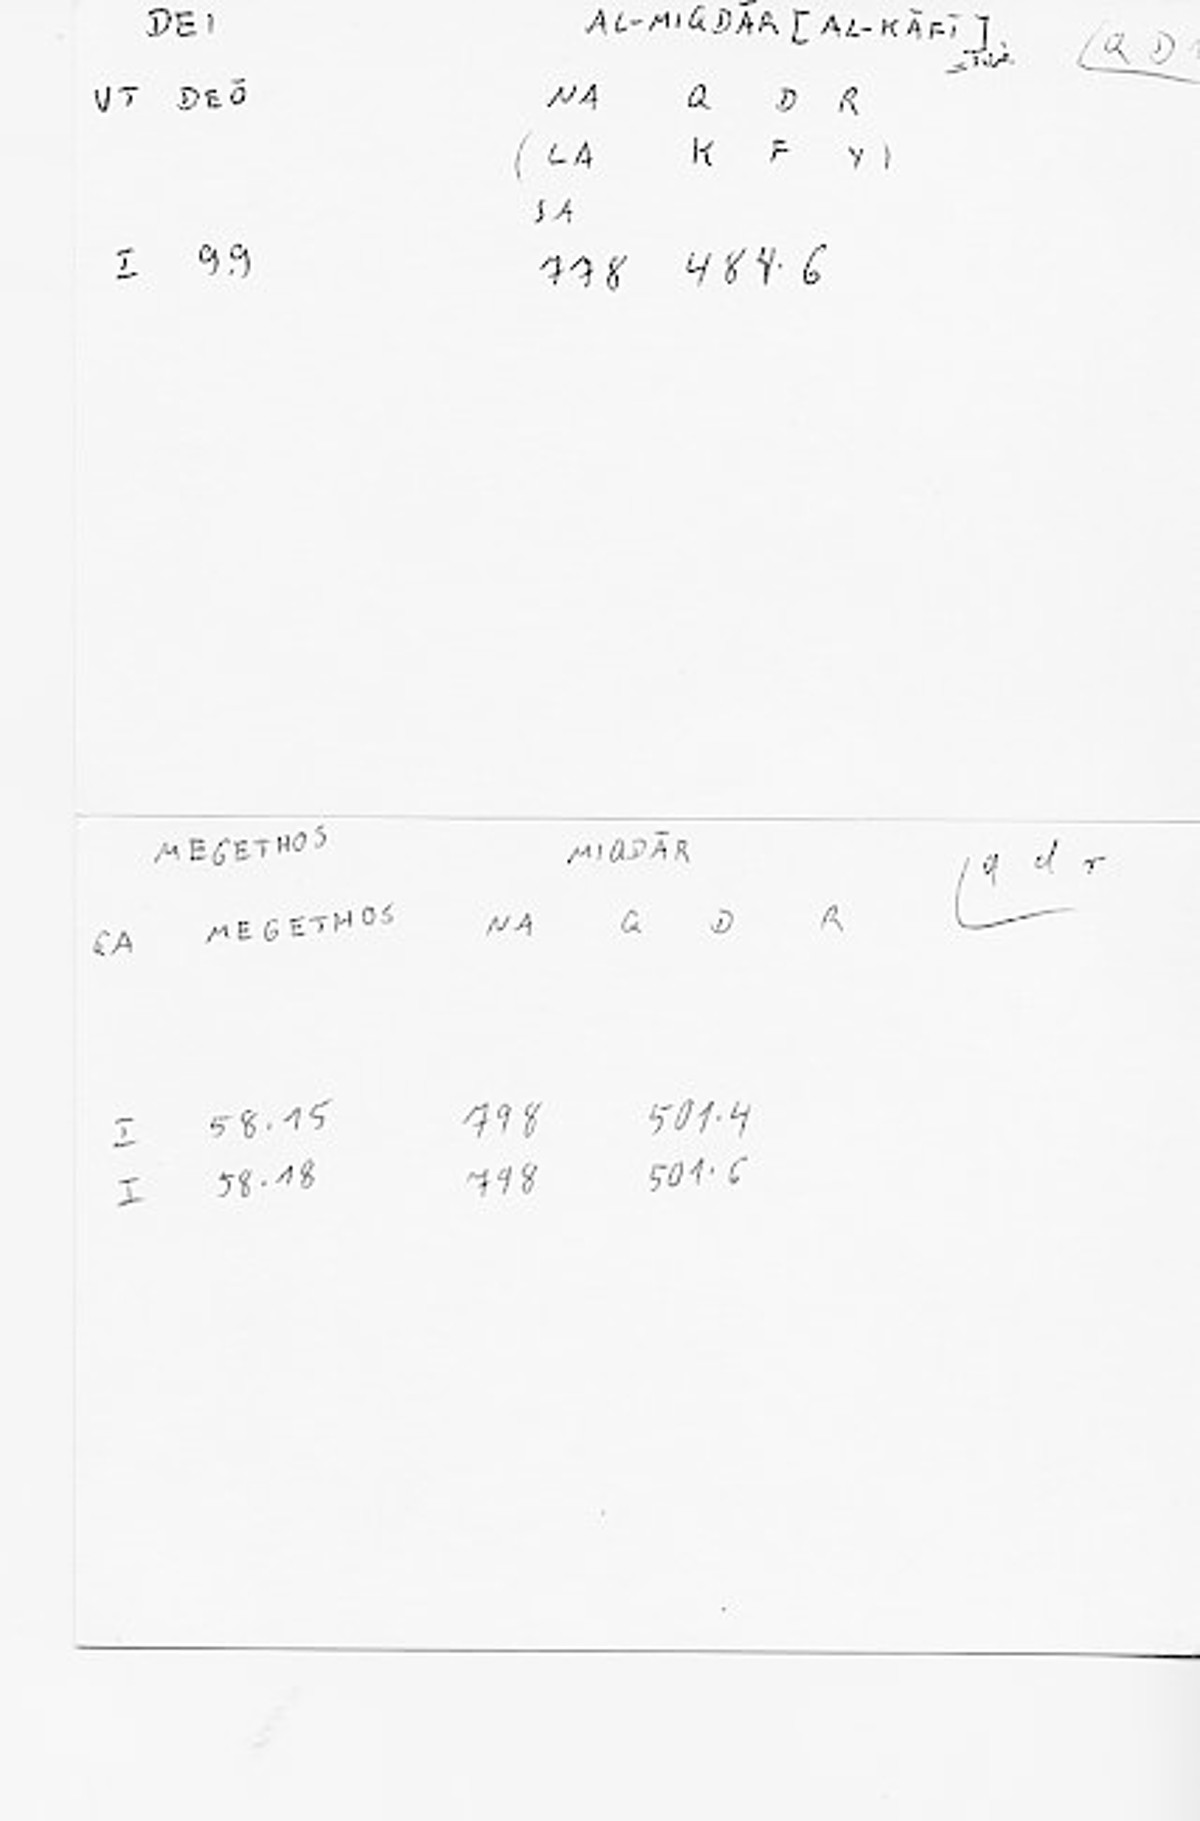 DEI AL-MIQDĀR [AL-KĀFĪ] (Q D
VT DEŌ NA Q D R
(LA K F Y)
SA
I 9.9 778 484.6
MEGETHOS MIQDĀR q d r
CA MEGETHOS NA Q D R
I 58.15 798 501.4
I 58.18 798 501.6